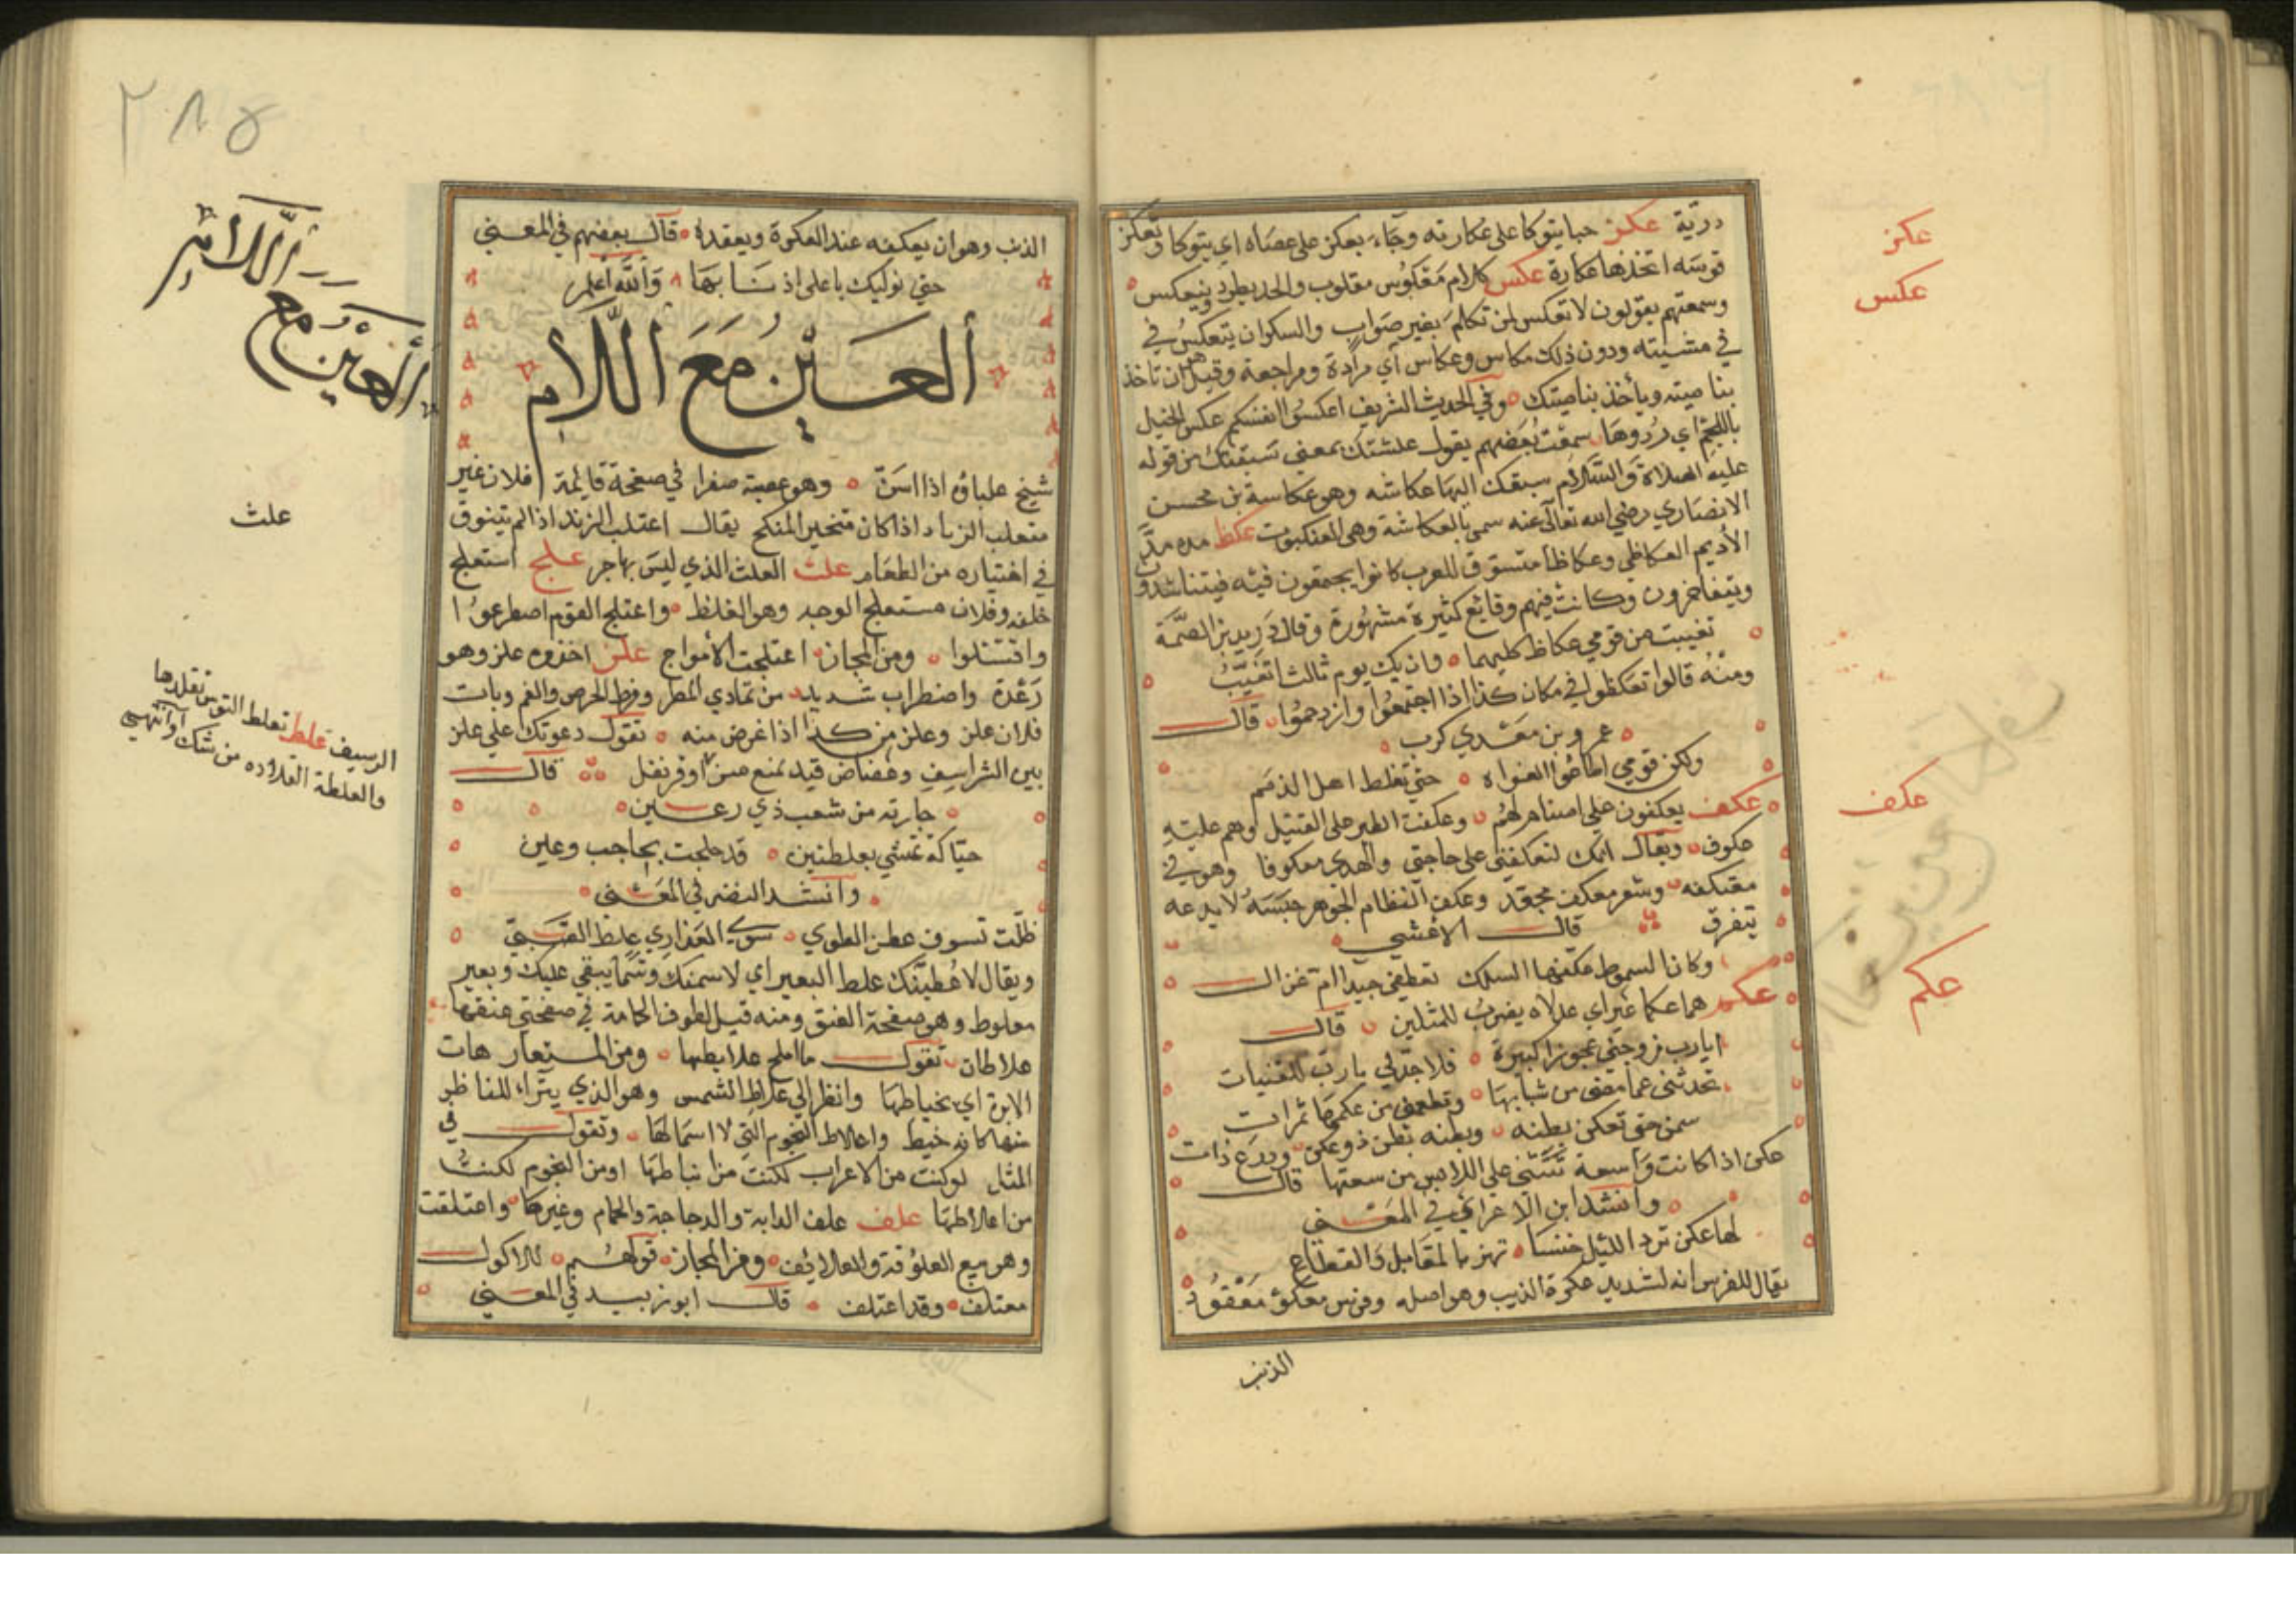 درية عكز حبا يتوكا على عكازته وجاء يعكز على عصاه اي يتوكا وتعكز
قوسه اتخذها عكازة عكس كلام معكوس مقلوب والحد يطرد وينعكس
وسمعتهم يقولون لا تعكس لمن تكلم بغير صواب والسكران يتعكس في
في مشيته ودون ذلك مكاس وعكاس اي مرادة ومراجعة وقيل ان تاخذ
بناصيته وياخذ بناصيتك وفي الحديث الشريف اعكسوا انفسكم عكس الخيل
باللجم اي ردوها سمعت بعضهم يقول عكشتك بمعنى سبقتك من قوله
عليه الصلاة والسلام سبقك اليها عكاشه وهو عكاسة بن محسن
الانصاري رضي الله تعالى عنه سمي بالعكاشة وهي العنكبوت عكظ مده مد
الأديم العكاظي وعكاظ متسوق للعرب كانوا يجتمعون فيه فيتناشدون
ويتفاخرون وكانت فيهم وقايع كثيرة مشهورة وقال دريد بن الصمة
تغيبت من قومي عكاظ كليهما وان يك يوم ثالث اتغيب
ومنه قالوا تعكظوا في مكان كذا اذا اجتمعوا وازدحموا قال
عمرو بن معدي كرب
ولكن قومي اطاعوا الغواه حتى تغلظ اهل الذمم
عكف يعكفون على اصنام لهم وعكفت الطير على القتيل وهم عليه
عكوف ويقال انك لتعكفني على حاجتي والهدي معكوفا وهو في
معتكفه وشعر معكف مجعد وعكف النظام الجوهر حبسه لا يدعه
يتفرق قال الاعشى
وكان السموط عكفها السلك بعطفي جيداء ام غزال
عكم هما عكما عير اي عدلاه يضرب للمثلين قال
ايا رب زوجني عجوزا كبيرة فلا جد لي يا رب للفتيات
تحدثني عما مضى من شبابها وتطعمني من عكمها ثمرات
سمن حتى تعكن بطنه وبطنه بطن ذو عكن ودرع ذات
عكن اذا كانت واسعة تتثنى على اللابس من سعتها قال
وانشد ابن الاعرابي في المعنى
لها عكن ترد النبل خنسا تهزء بالمقابل والقطاع
يقال للفرس انه لشديد عكوة الذنب وهو اصله وفرس معكو معقود
الذنب
عكز
عكس
عكف
عكم
٢٨٥
الذنب وهو ان يعكفه عند العكوة ويعقده قال بعضهم في المعنى
حتى نوليك باعلى اذنابها والله اعلم
العين مع اللام
شيخ علباؤه اذا اسن وهو عصبة صفرا في صفحة قايمة فلان غير
متعلب الزناد اذا كان متخير المنكح يقال اعتلب الزند اذا لم يتنوق
في اختياره من الطعام علث العلث الذي ليس بهاجر علج استعلج
خلقه وفلان مستعلج الوجه وهو الغلظ واعتلج القوم اصطرعوا
واقتتلوا ومن المجاز اعتلجت الأمواج علز اخذه علز وهو
رعدة واضطراب شديد من تمادي المطر وفرط الحرص والغم وبات
فلان علز وعلز من كذا اذا غرض منه تقول دعوتك على علز
بين الشراسيف قال
جارته من شعب ذي رعين
حياكة تمشي بعلطتين قد خلجت بحاجب وعين
وانشد النضر في المعنى
ظلت تسوف عطن الطوي سوف العذاري علط القسي
ويقال لاعلطنك علط البعير اي لاسمنك وسما يبقى عليك وبعير
معلوط وهو صفحة العنق ومنه قيل لطوق الحمامة في صفحتي عنقها
علاطان تقول ما املح علاطيها ومن المستعار هات
الابرة اي بخياطها وانظر الى علاط الشمس وهو الذي يتراء للناظر
منها كانه خيط واعلاط النجوم التي لا اسما لها وتقول في
المثل لو كنت من الاعراب لكنت من انباطها او من النجوم لكنت
من اعلاطها علف علف الدابة والدجاجة والحمام وغيرها واعتلفت
وهو بيع العلوفة والعلائف ومن المجاز قولهم للاكول
معتلف وقد اعتلف قال ابو زبيد في المعنى
العين مع اللام
علث
الرسيف علط تعلط القوس تقلدها
والعلطة القلاده من شك او انتهى